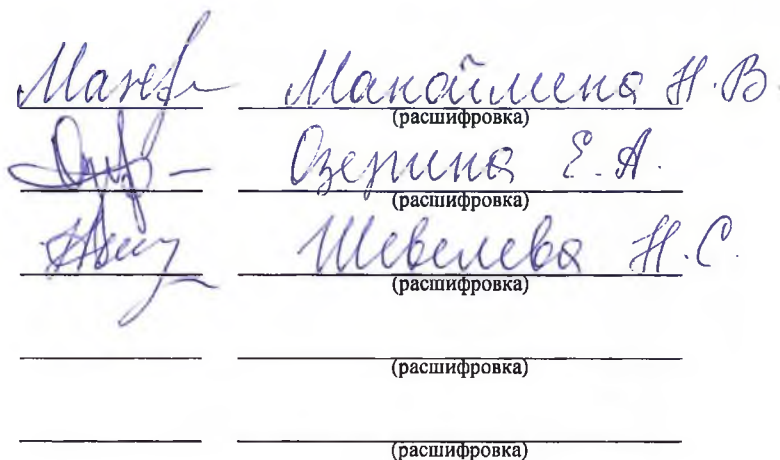 Манойлина Н.В.
(расшифровка)
Озерина Е.А.
(расшифровка)
Шевелева Н.С.
(расшифровка)
(расшифровка)
(расшифровка)